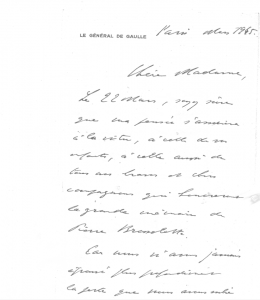 LE GÉNÉRAL DE GAULLE
Paris Mars 1965.
Chère Madame,
Le 22 Mars, soyez sûre
que ma pensée s'associera
à la vôtre, à celle de vos
enfants, à celle aussi de
tous ses bons et chers
compagnons qui honorent
la grande mémoire de
Pierre Brossolette.
Car nous n'avons jamais
plus
la perte que nous avons